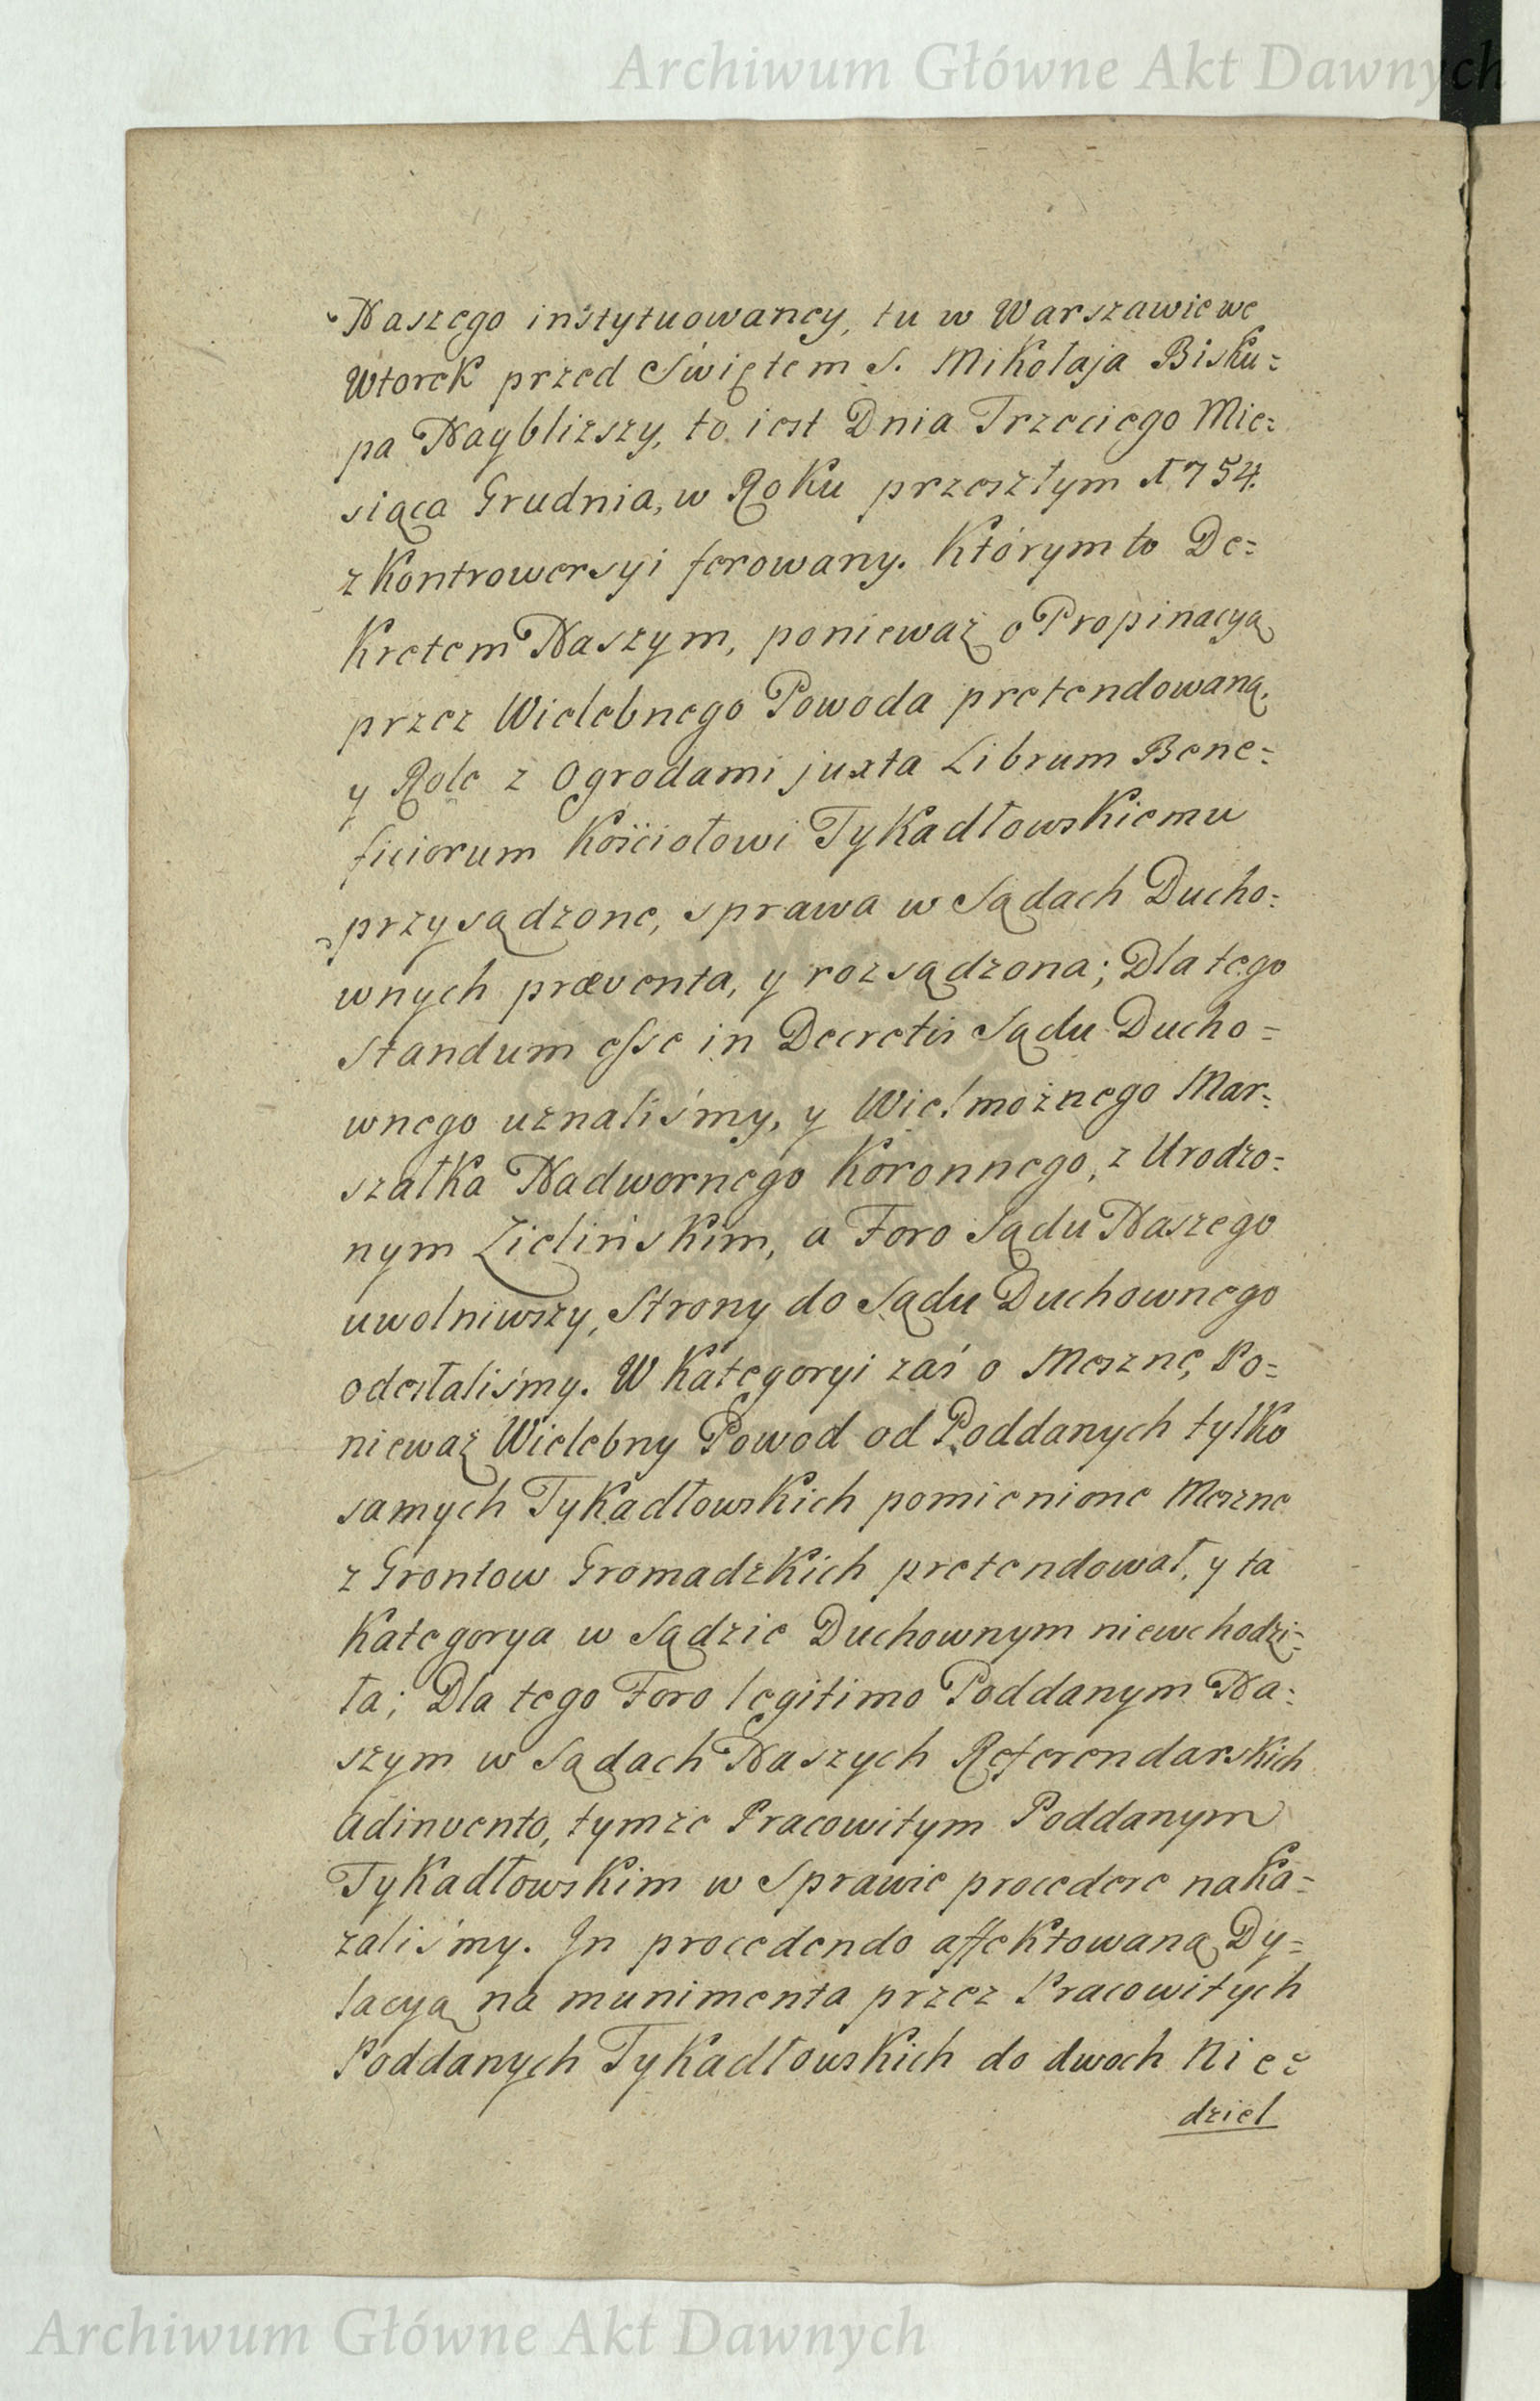 Archiwum Główne Akt Dawnych
Naszego instytuowaney, tu w Warszawie we
Wtorek przed Swiętem S. Mikołaja Bisku=
pa Naybliższy, to iest Dnia Trzeciego Mie=
siąca Grudnia, w Roku przeszłym 1754.
z Kontrowersyi ferowany. Którym to De=
Kretem Naszym, ponieważ o Propinacyą
przez Wielebnego Powoda pretendowaną,
y Role z Ogrodami juxta Librum Bene=
ficiorum Kościołowi Tykadłowskiemu
przysądzone, sprawa w Sądach Ducho=
wnych præventa, y rozsądzona; Dla tego
Standum esse in Decretis Sądu Ducho=
wnego uznaliśmy, y Wielmożnego Mar=
szałka Nadwornego Koronnego, z Urodzo=
nym Zielińskim, a Foro Sądu Naszego
uwolniwszy, Strony do Sądu Duchownego
odesłaliśmy. W Kategoryi zaś o Meszne, Po=
nieważ Wielebny Powod od Poddanych tylko
samych Tykadłowskich pomienione Meszne
z Grontow Gromadzkich pretendował, y ta
Kategorya w Sądzie Duchownym niewchodzi=
ła; Dla tego Foro legitimo Poddanym Na=
szym w Sądach Naszych Referendarskich
adinvento, tymże Pracowitym Poddanym
Tykadłowskim w Sprawie procedere naka=
zaliśmy. In procedendo affektowaną Dy=
lacyą na munimenta przez Pracowitych
Poddanych Tykadłowskich do dwoch Nie=
dziel
Archiwum Główne Akt Dawnych